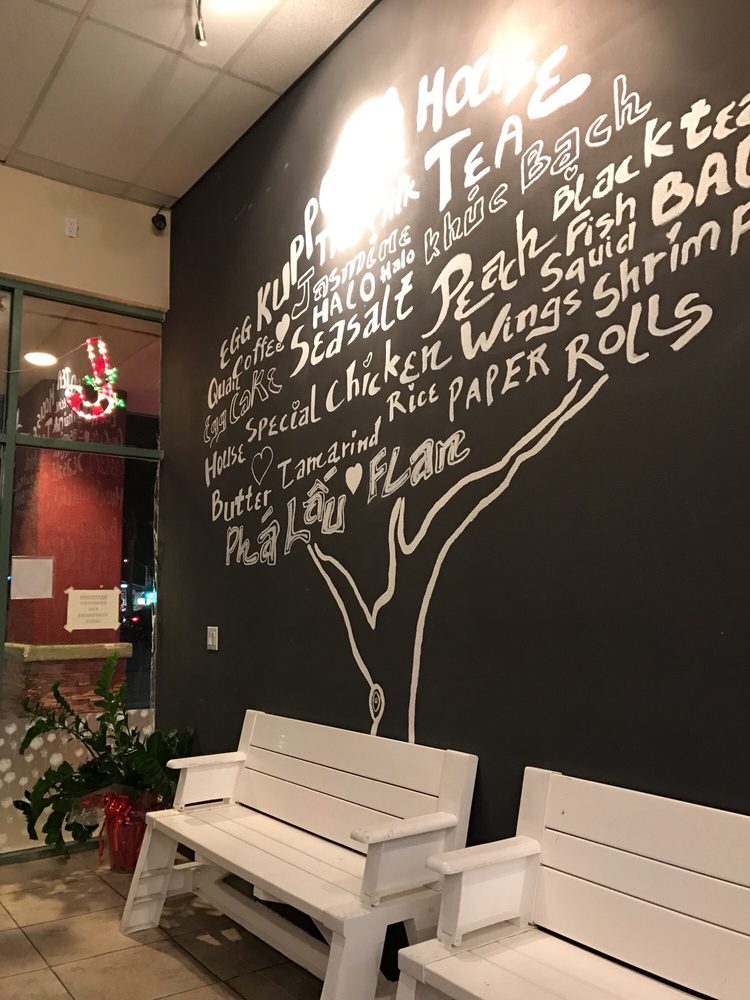 HOUSE
TEA
KUPP
Milk
khúc Bạch
Black tea
EGG
Jasmine
HALO Halo
Peach
Fish
Quan Coffee
Seasalt
Squid
Shrimp
Egg Cake
House SPECIAL CHICKEN Wings
Butter Tamarind Rice PAPER ROLLS
Phá Lấu FLan